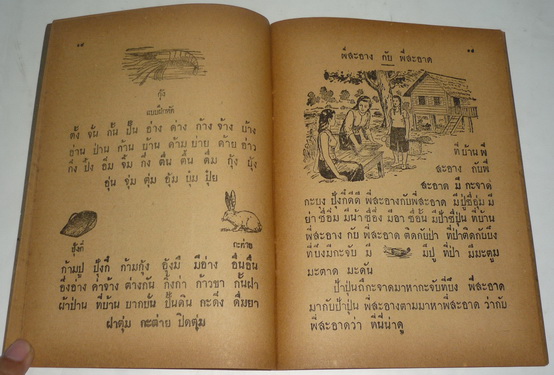 ๑๔
กุ้ง
แบบฝึกหัด
ตั้ง ขั้น กั้น ปั้น อ่าง ต่าง ก้าง จ้าง บ้าง
อ่าน ป่าน ก้าน บ้าน ด้าม ย่าย ต้าย อ่าว
กิ่ง ปิ้ง อิ่ม จิ้ม กึ่ง ตื่น ดื่น ดื่ม กุ้ง ยุ่ง
อุ่น จุ่ม ตุ่ม อุ้ม ยุ่ม ปุ๋ย
ปุ้งกี๋
กะต่าย
ก้ามปู ปุ้งกี๋ ก้ามกุ้ง อุ้งมี มีอ่าง
อึ่งอ่าง ค่าจ้าง ต่างกัน กิ้งก่า ก้าวขา กั้นฝา
ผ้าป่าน ที่บ้าน ยากยั่น ปั้นดิน กะดึ่ง ดื่มยา
ฝาตุ่ม กะต่าย ปิดตุ่ม
พี่สะอาง กับ พี่สะอาด
๑๕
ที่บ้านพี่
สะอาง กับพี่
สะอาด มี กะจาด
กะบุง ปุ้งกี๋ดีดี พี่สะอางกับพี่สะอาด มีปู่ชื่อ
พี่สะอาง กับ พี่สะอาด ติดกับป่า ที่ป่าติดกับบึง
ที่บึงมีกะจับ มี มีปู ที่ป่า มีมะตูม
มะตาด มะดัน
ป้าปุ่นถือกะจาดมาหากะจับที่บึง พี่สะอาด
มากับป้าปุ่น พี่สะอางตามมาหาพี่สะอาด ว่ากับ
พี่สะอาดว่า ที่นี่น่าดู